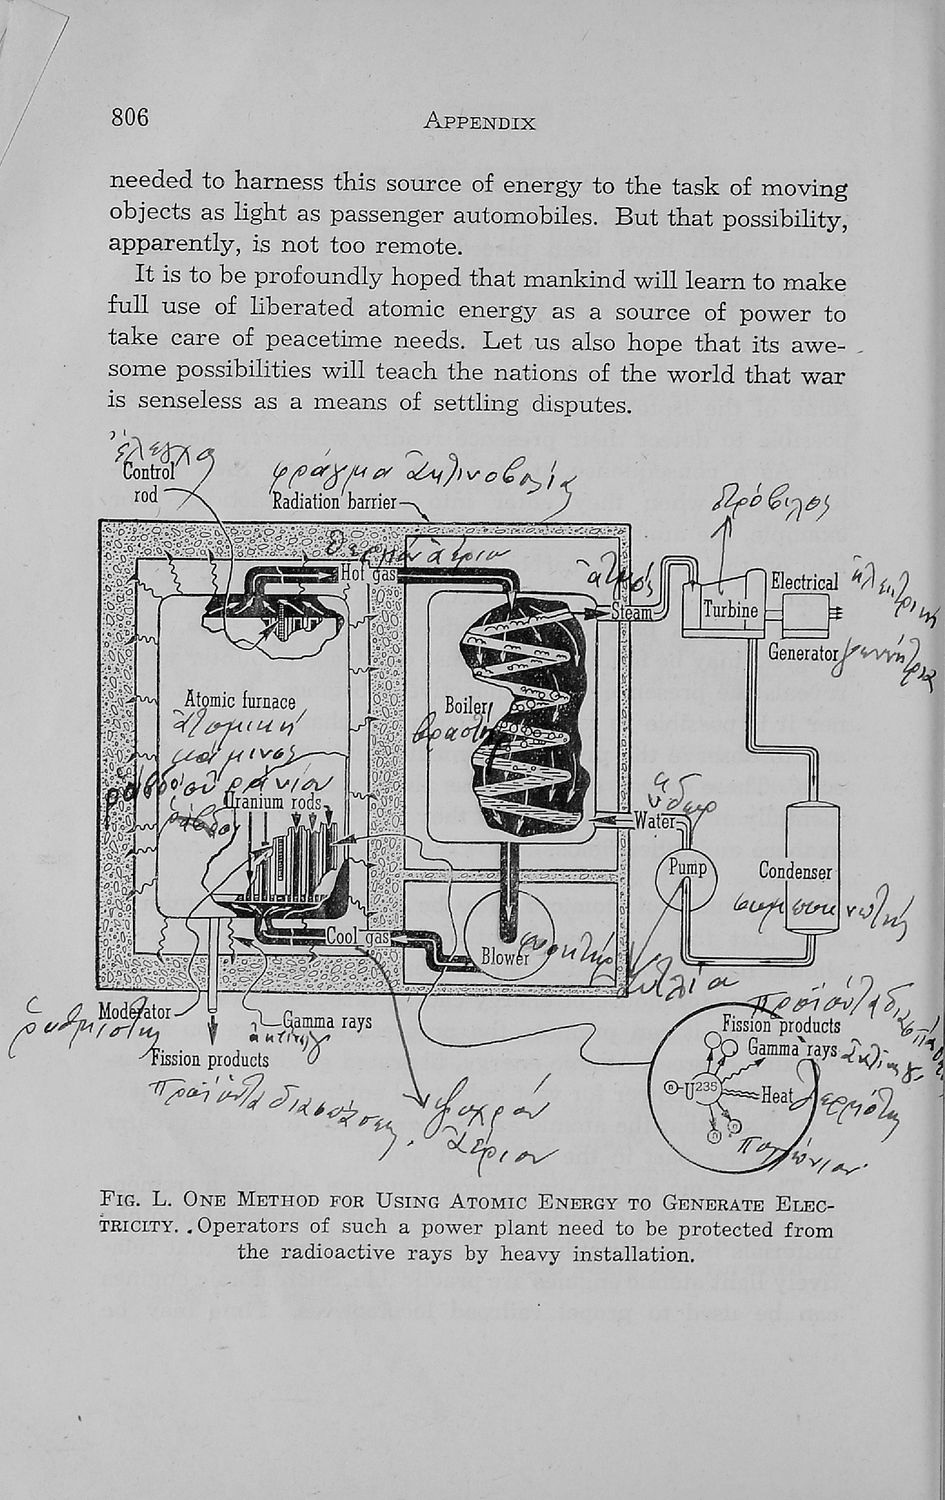 806
APPENDIX
needed to harness this source of energy to the task of moving
objects as light as passenger automobiles. But that possibility,
apparently, is not too remote.
It is to be profoundly hoped that mankind will learn to make
full use of liberated atomic energy as a source of power to
take care of peacetime needs. Let us also hope that its awe-
some possibilities will teach the nations of the world that war
is senseless as a means of settling disputes.
Control
rod
φράγμα ἀκτινοβολία
Radiation barrier
στρόβιλος
θερμὸν ἀέριον
Hot gas
ἀτμός
Steam
Turbine
Electrical
ἠλεκτρική
Generator
γεννήτρια
Atomic furnace
ἀτομική
κάμινος
Boiler
βραστήρ
ράβδοι οὐράνιον
Uranium rods
ράβδοι
ὕδωρ
Water
Pump
Condenser
συμπυκνωτής
Cool gas
Blower
φυσητήρ
ἀντλία
Moderator
ῥυθμιστής
Gamma rays
ἀκτῖνες γ
Fission products
προϊόντα διασπάσεως
ψυχρὸν
ἀέριον
προϊόντα διασπάσεως
Fission products
Gamma rays
ἀκτῖνες γ
n
U235
Heat
θερμότης
n
n
FIG. L. ONE METHOD FOR USING ATOMIC ENERGY TO GENERATE ELEC-
TRICITY. Operators of such a power plant need to be protected from
the radioactive rays by heavy installation.